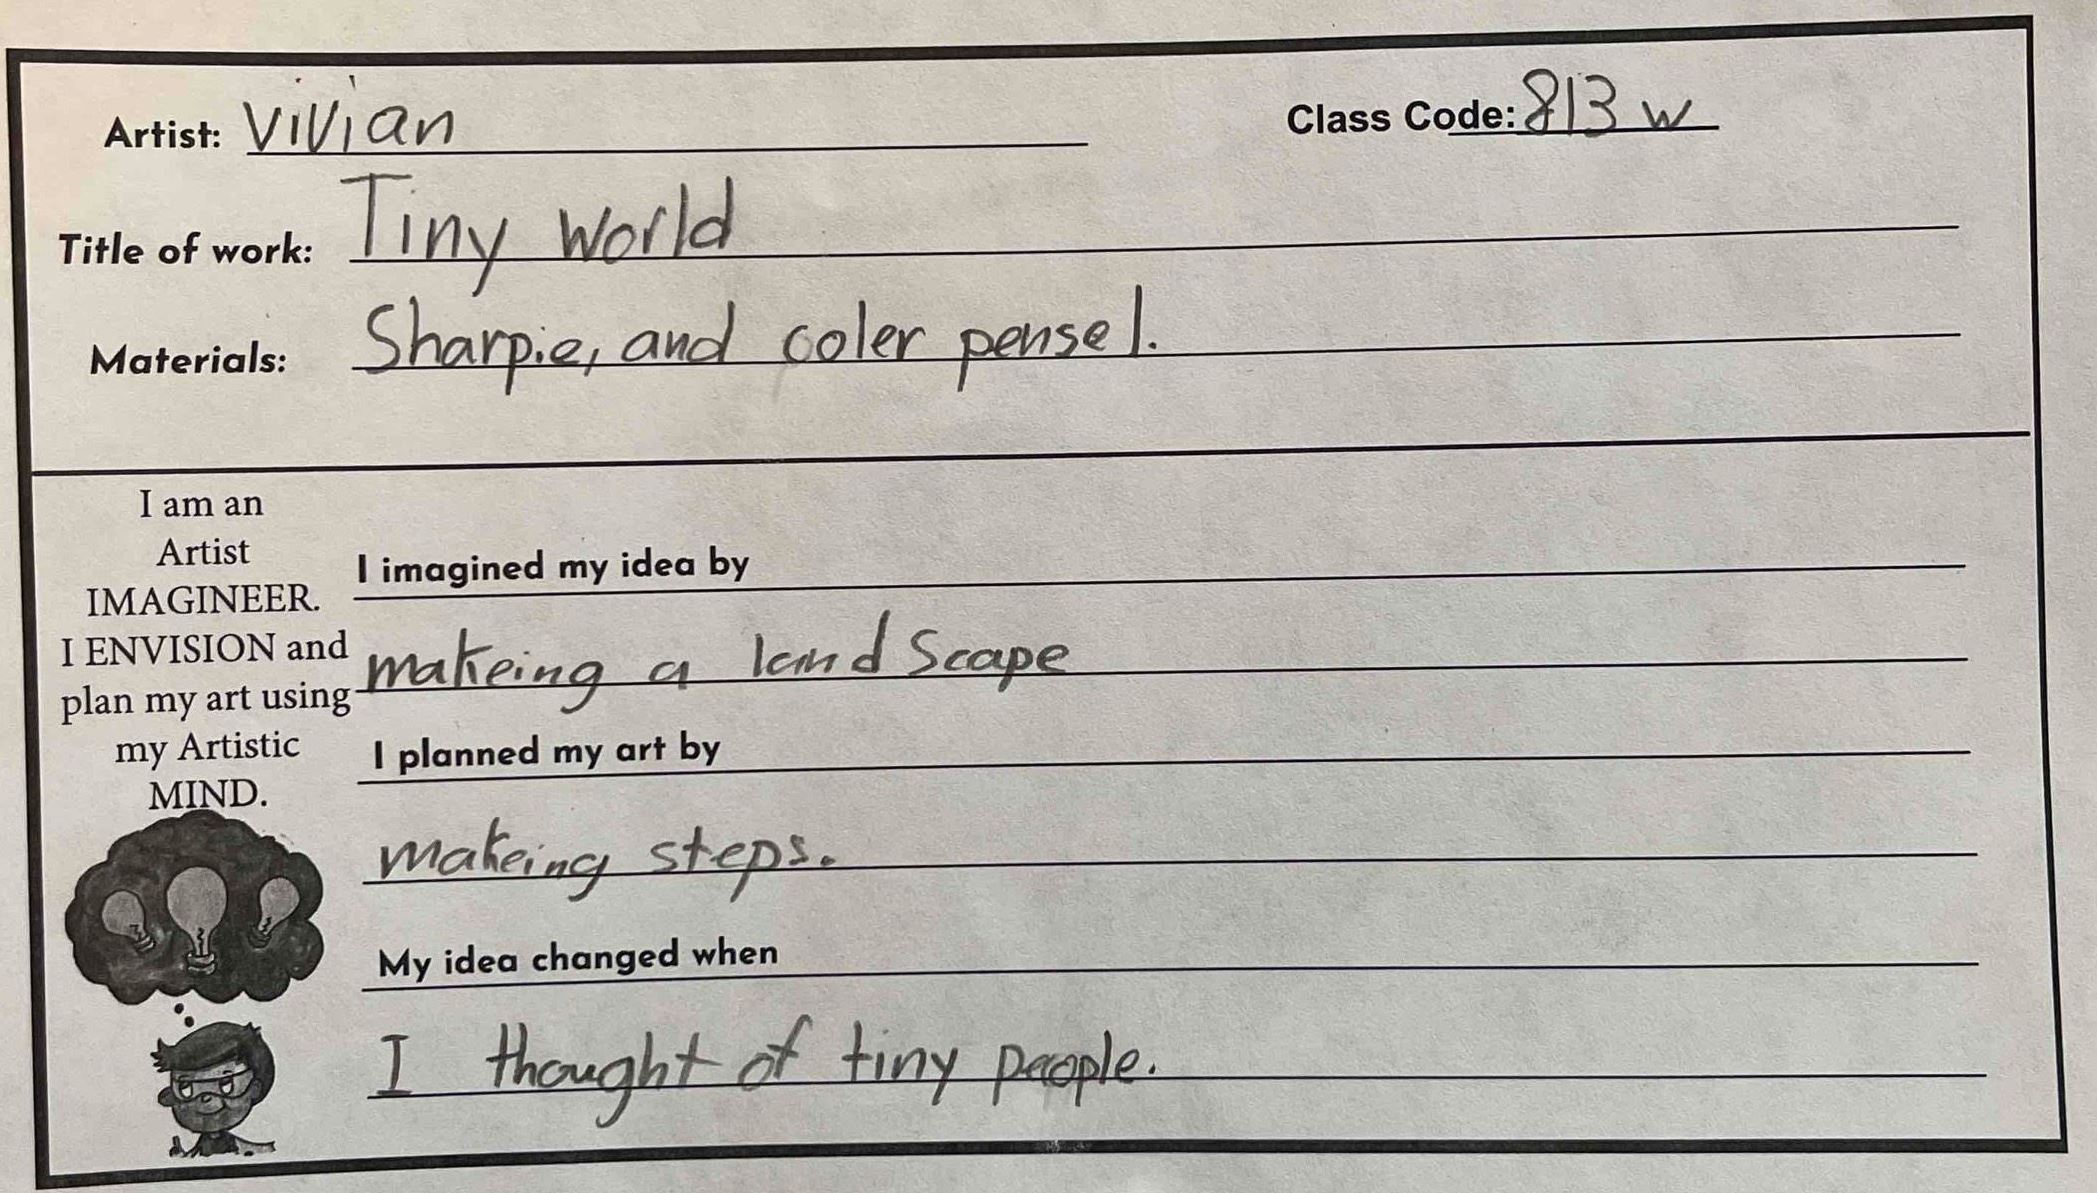 Artist: Vivian Class Code: 813 w
Title of work: Tiny world
Materials: Sharpie, and coler pensel.
I am an
Artist
IMAGINEER.
I ENVISION and
plan my art using
my Artistic
MIND.
I imagined my idea by
makeing a land Scape
I planned my art by
makeing steps.
My idea changed when
I thought of tiny people.